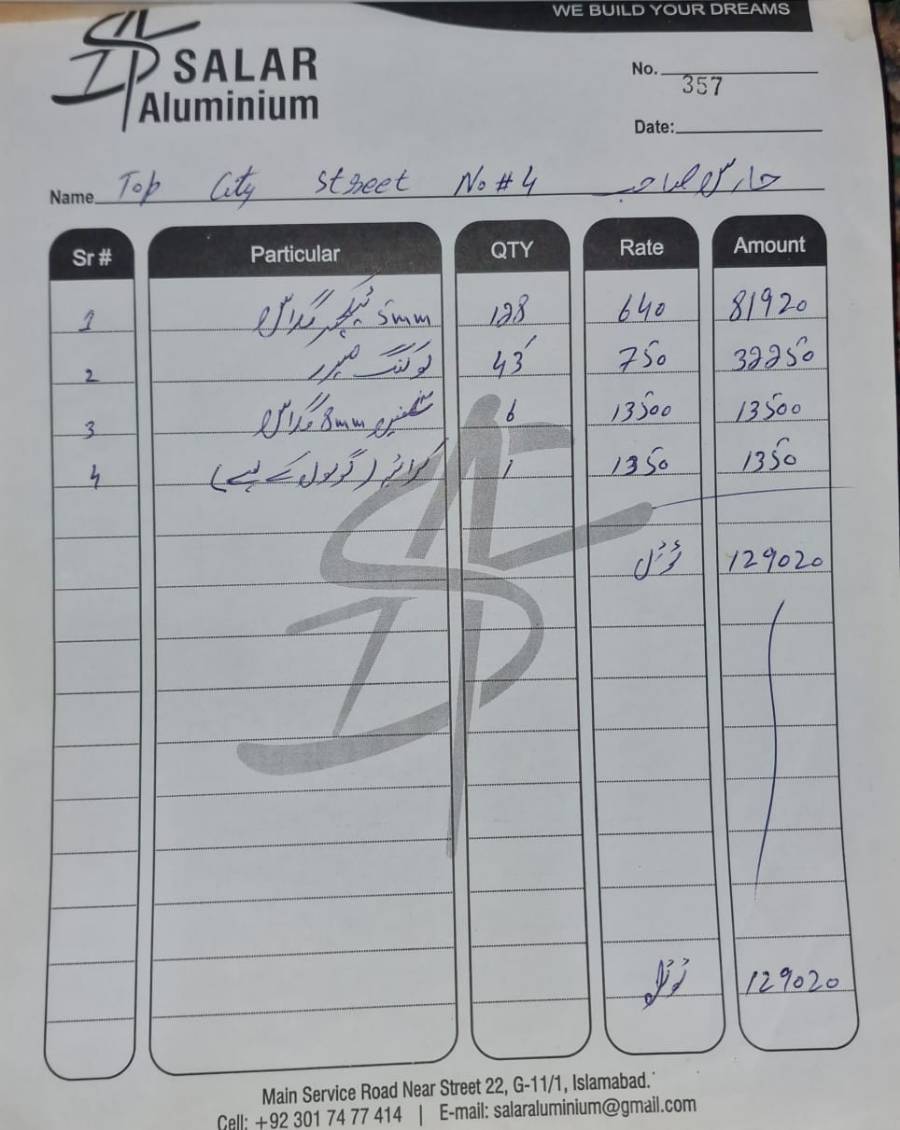 WE BUILD YOUR DREAMS
SALAR
Aluminium
No. 357
Date:
Name Top City Street No # 4 حارث صاحب
Sr # Particular QTY Rate Amount
1 5mm ٹیکچر گلاس 128 640 81920
2 لوکنگ میرر 43 750 32250
3 8mm گلاس 6 13500 13500
4 کرایہ ( کے لیے) 1 1350 1350
ٹوٹل 129020
ٹوٹل 129020
Main Service Road Near Street 22, G-11/1, Islamabad.
Cell: +92 301 74 77 414 | E-mail: salaraluminium@gmail.com